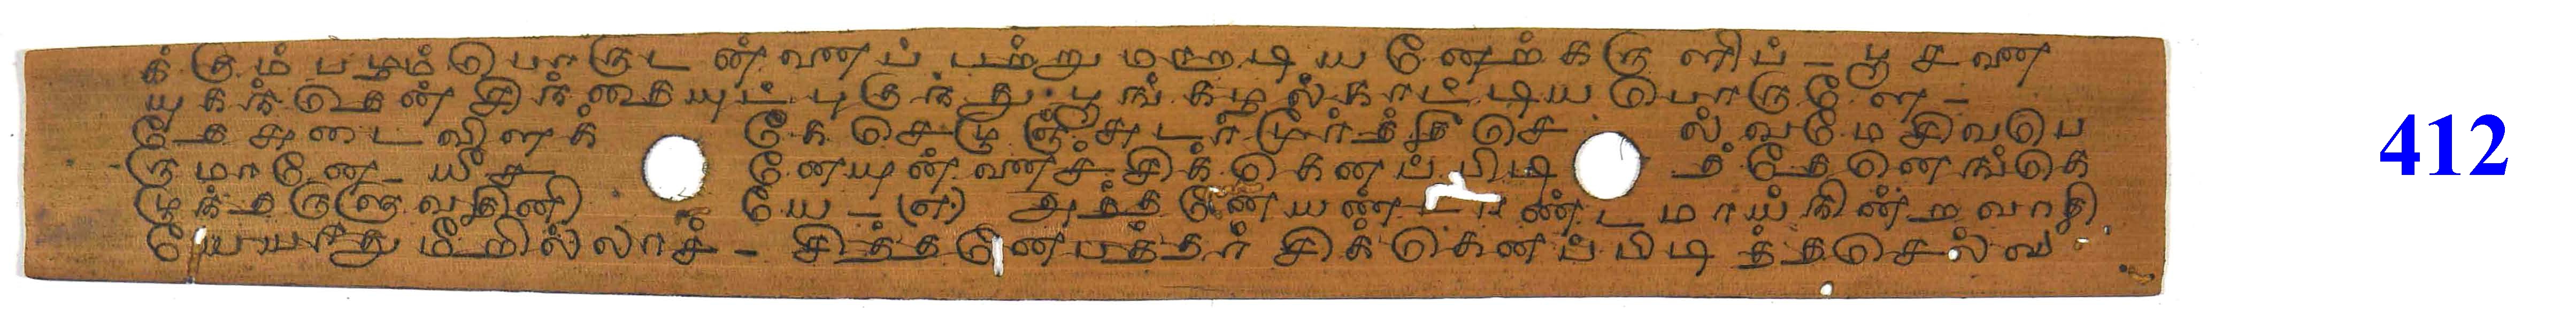 க்கும் பழம்பொருடன்னைப் பற்றுமாறடியனேற்கருளிப் - பூசனை
யுகந்தென் சிந்தையுட் புகுந்து பூங்கழல்காட்டிய பொருளே -
தேசுடைவிளக்கே செழுஞ்சுடர்மூர்த்தி செல்வமே சிவபெ
ருமானே - யீசனேயுன்னைச் சிக்கெனப்பிடித்தேனெங்கெ
ழுந்தருளுவதினியே - (எ) அத்தனேயண்டரண்டமாய்நின்றவாதி
யேயாதுமீறில்லாச் - சித்தனேபத்தர் சிக்கெனப்பிடித்தசெல்வ
412